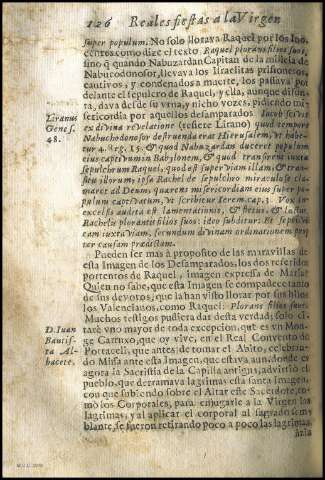 126 Reales fiestas a la Virgen
super populum. No solo llorava Raquel por los Ino-
centes como dize el texto. Raquel plorans filios suos,
sino q̃ quando Nabuzardan Capitan de la milicia de
Nabucodonosor, llevava los Israelitas prisioneros,
cautivos, y condenados a muerte, los passava por
delante el sepulcro de Raquel, y ella, aunque difun-
ta, dava desde su vrna, y nicho vozes, pidiendo mi-
sericordia por aquellos desamparados. Iacob scivit
Liranus
Genes.
48.
ex divina revelatione (refiere Lirano) quod tempore
Nabuchodonosor destruenda erat Hierusalem, vt habe-
tur 4. Reg. 25. & quod Nabuzardan duceret populum
eius captivum in Babylonem, & quod transiens iuxta
sepulchrum Raquel, quod est super viam illam, & tran-
situ illorum, ipsa Rachel de sepulchro miraculose cla-
maret ad Deum, quærens misericordiam eius super po-
pulum captivatum, vt scribitur Ierem. cap. 3. Vox in
excelsis audita est lamentationis, & fletus, & luctus,
Rachelis plorantis filios suos: ideo subditur: Et sepelivi
eam iuxta viam, secundum divinam ordinationem prop-
ter causam prædictam.
Pueden ser mas à proposito de las maravillas de
esta Imagen de los Desamparados, los dos referidos
portentos de Raquel, imagen expressa de Maria?
Quien no sabe, que esta Imagen se compadece tanto
de sus devotos, que la han visto llorar por sus hijos
los Valencianos, como Raquel: Plorans filios suos?
Muchos testigos pudiera dar desta verdad; solo ci-
D. Iuan
Bautis-
ta Al-
bacete.
tarè vno mayor de toda excepcion, que es vn Mon-
ge Cartuxo, que oy vive, en el Real Convento de
Portaceli, que antes, de tomar el Abito, celebran-
do Missa ante esta Imagen, que estava aun donde es
agora la Sacristia de la Capilla antigua, advirtiò el
pueblo, que derramava lagrimas esta santa Imagen,
con que subiendo sobre el Altar este Sacerdote, to-
mò los Corporales, para enjugarle a la Virgen las
lagrimas, y al aplicar el corporal al sagrado sem-
blante, se fueron retirando poco a poco las lagrimas,